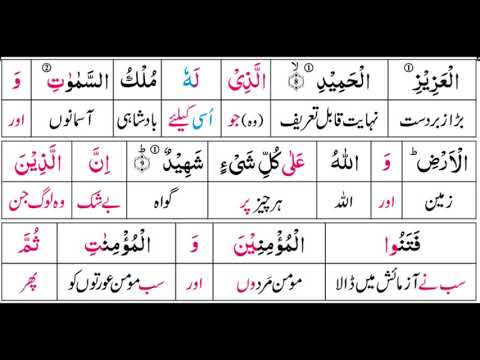 الْعَزِيْزِ ① الْحَمِيْدِ ① ۙ ⑧ الَّذِىْ لَهٗ مُلْكُ السَّمٰوٰتِ ② وَ
بڑا زبردست نہایت قابل تعریف (وہ) جو اُسی کیلئے بادشاہی آسمانوں اور
الْاَرْضِ ؕ وَ اللّٰهُ عَلٰى كُلِّ شَىْءٍ شَهِيْدٌ ① ؕ ⑨ اِنَّ الَّذِيْنَ
زمین اور اللہ ہر چیز پر گواہ بے شک وہ لوگ جن
فَتَنُوا الْمُؤْمِنِيْنَ وَ الْمُؤْمِنٰتِ ثُمَّ
سب نے آزمائش میں ڈالا مومن مَردوں اور سب مومن عورتوں کو پھر